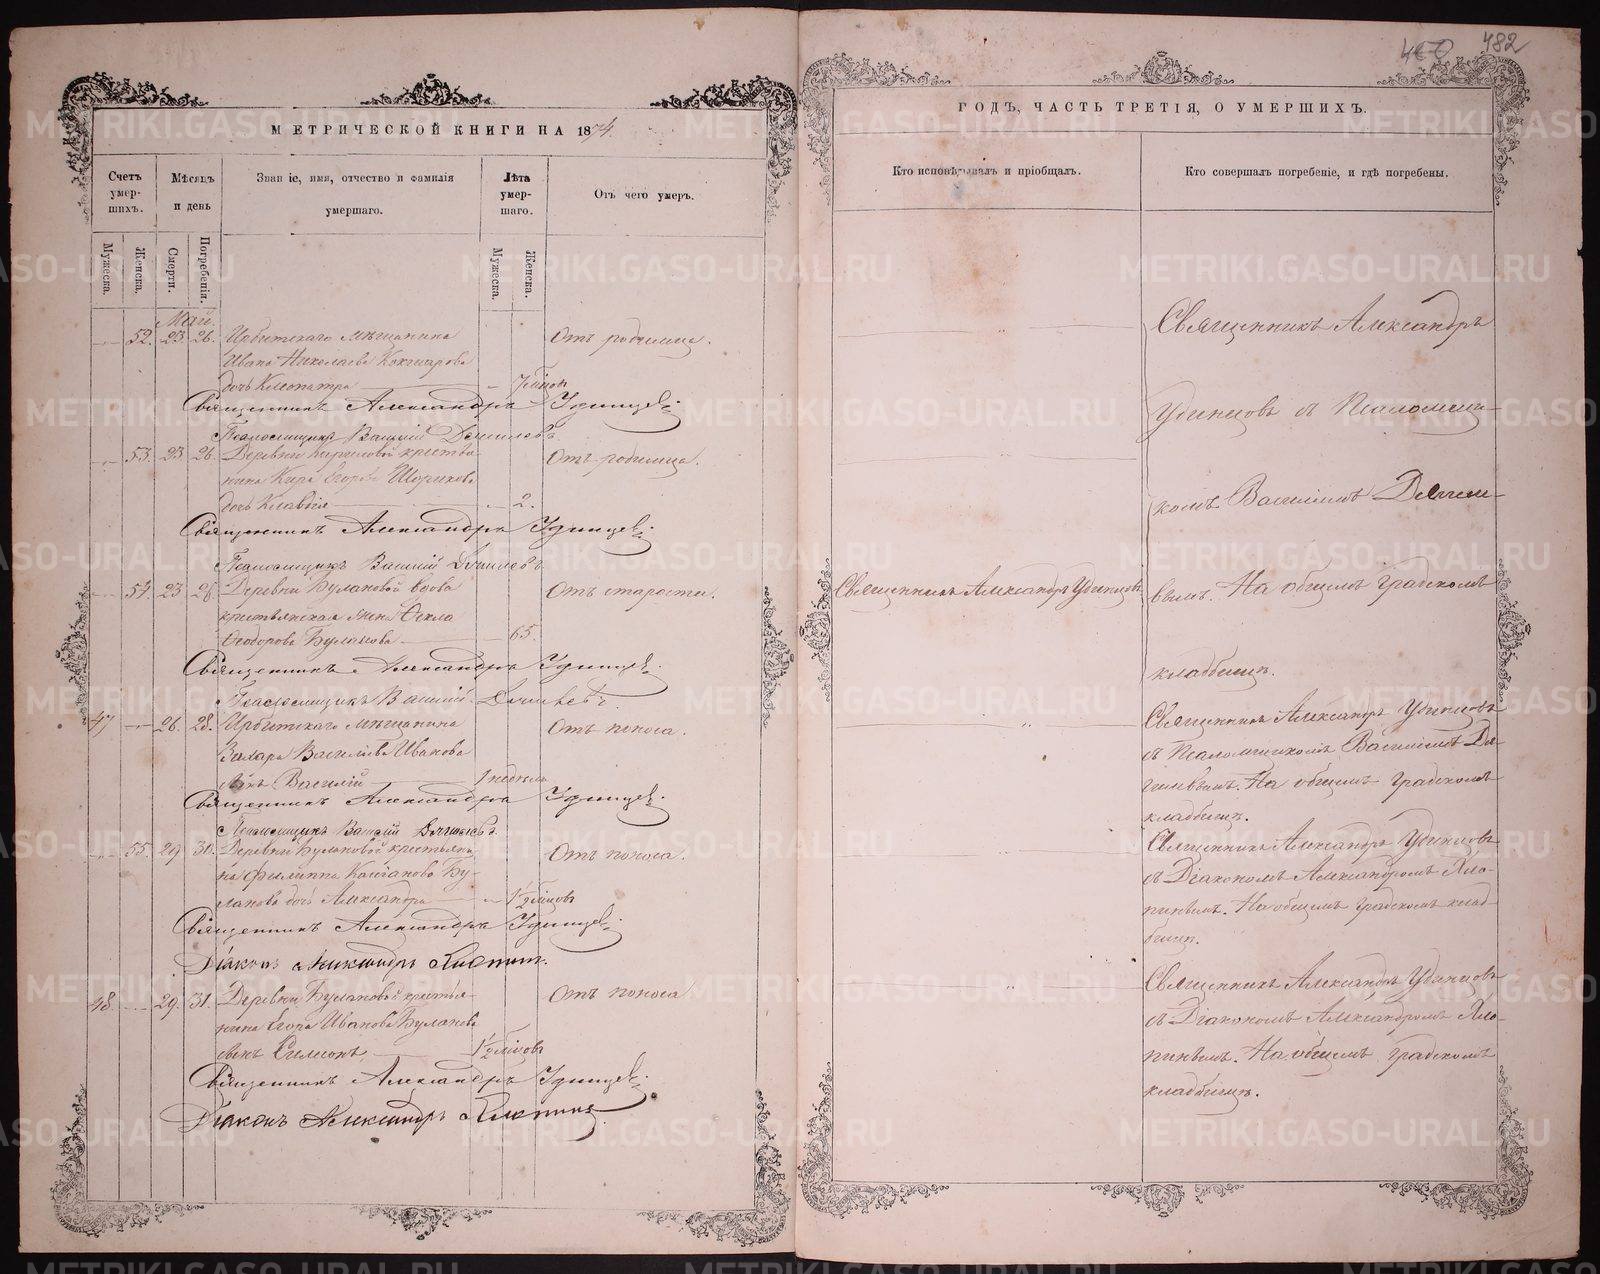 МЕТРИЧЕСКОЙ КНИГИ НА 1874.
Счетъ умер-шихъ.
Мѣсяцъ и день
Званіе, имя, отчество и фамилія умершаго.
Лѣта умер-шаго.
Отъ чего умеръ.
Мужеска.
Женска.
Смерти.
Погребенія.
Мужеска.
Женска.
Май.
52. 23. 26. Ирбитскаго мѣщанина Отъ родимца.
Ивана Николаева Кокшарова
дочь Клеопатра
Священникъ Александръ Удинцевъ.
Псаломщикъ Василій
53. 23. 26. Деревни Кириловой крестья- Отъ родимца.
нина Кира Егорова
дочь Клавдія 2.
Священникъ Александръ Удинцевъ.
Псаломщикъ Василій
54. 23 26. Деревни Булановой вдова Отъ старости.
крестьянская жена Ѳекла
Ѳеодорова Буланова 65.
Священникъ Александръ Удинцевъ.
Псаломщикъ Василій
47 26. 28. Ирбитскаго мѣщанина Отъ поноса.
Захара Васильева Иванова
сынъ Василій 1 недѣль
Священникъ Александръ Удинцевъ.
Псаломщикъ Василій
55. 29 31. Деревни Булановой крестьяни- Отъ поноса.
на Филиппа Бу-
ланова дочь Александра 1½
Священникъ Александръ Удинцевъ.
Діаконъ Александръ
48. 29. 31. Деревни Булановой крестья- Отъ поноса
нина Егора Иванова Буланова
сынъ Симеонъ 1½
Священникъ Александръ Удинцевъ.
Діаконъ Александръ
482
ГОДЪ, ЧАСТЬ ТРЕТІЯ, О УМЕРШИХЪ.
Кто исповѣдывалъ и пріобщалъ.
Кто совершалъ погребеніе, и гдѣ погребены.
Священникъ Александръ
Удинцовъ съ Псаломщи-
комъ Василіемъ
Священникъ Александръ Удинцовъ.
вымъ. На общемъ градскомъ
кладбищѣ.
Священникъ Александръ Удинцовъ
съ Псаломщикомъ Василіемъ
На общемъ градскомъ
кладбищѣ.
Священникъ Александръ Удинцовъ
съ Діакономъ Александромъ
На общемъ градскомъ клад-
бищѣ.
Священникъ Александръ Удинцовъ
съ Діакономъ Александромъ
На общемъ градскомъ
кладбищѣ.
METRIKI.GASO-URAL.RU